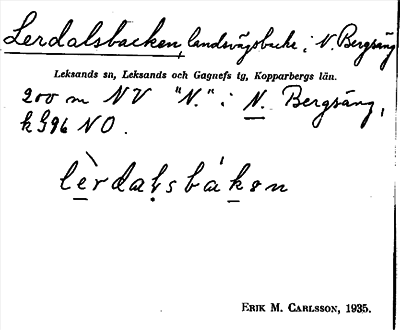 Lerdalsbacken, landsvägsbacke i N. Bergsäng
Leksands sn, Leksands och Gagnefs tg, Kopparbergs län.
200 m NV "N." i N. Bergsäng,
k 996 NO.
lèrdaḷsbákən
ERIK M. CARLSSON, 1935.